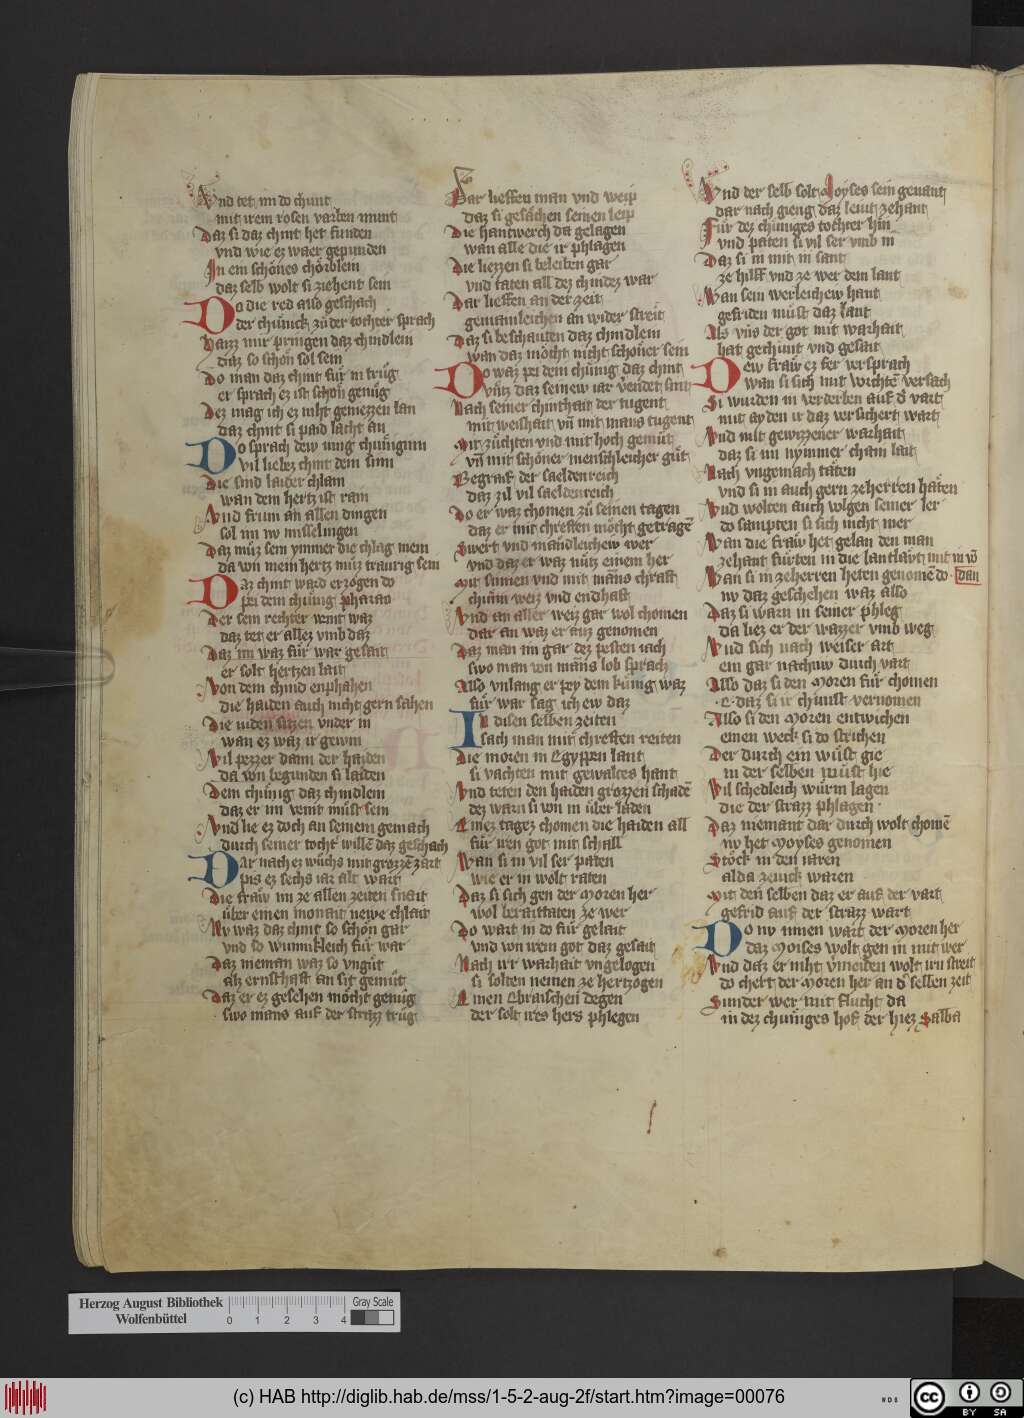 Vnd tet im do chunt
mit irem rosen varben munt
Daz si daz chint het funden
vnd wie ez waer gepunden
In ein schönes chörblein
daz selb wolt si ziehent sein
Do die red also geschach
der chünick zů der tochter sprach
Haizz mir pringen daz chindlein
daz so schön sol sein
Do man daz chint für in trůg
er sprach ez ist schön genůg
Dez mag ich ez niht geniezzen lan
daz chint si paid lacht an
Do sprach dew iung chüniginn
vil liebez chint dem sinn
Die sind laider chlain
wan dem hertz ist rain
Vnd frum an allen dingen
sol im nv misselingen
Daz můz sein ymmer die chlag mein
da von mein hertz můz traurig sein
Daz chint ward erzogen do
pei dem chünig pharao
Der sein rechter veint waz
daz tet er allez vmb daz
Daz im waz für war gesait
er solt hertzen lait
Von dem chind enphahen
die haiden auch nicht gern sahen
Die iuden sitzen vnder in
wan ez waz ir gewin
Vil pezzer dann der haiden
da von begunden si laiden
Dem chünig daz chindlein
daz er im veint můst sein
Vnd lie ez doch an seinem gemach
durch seiner tocht willē daz geschach
Dar nach er wůchs mit grozzē zart
pis ez sechs iar alt wart
Die fraw im ze allen zeiten snait
über einen monait newe chlait
Nv waz daz chint so schön gar
vnd so wunnikleich für war
Daz nieman waz so vngůt
alz ernsthaft an sit gemůt
Daz er ez gesehen möcht genůg
swo mans auf der strazz trůg
Dar lieffen man vnd weip
daz si gesächen seinen leip
Die hantwerch da gelagen
wan alle die ir phlagen
Die liezzen si beleiben gar
vnd taten all dez chindez war
Dar lieffen an der zeit
gemainleichen an wider streit
Daz si beschauten daz chindlein
wan daz möcht nicht schöner sein
Do waz pei dem chünig daz chint
vntz daz seinew iar vendet sint
Nach seiner chinthait der tugent
mit weishait vn̄ mit mans tugent
Mit züchten vnd mit hoch gemůt
vn̄ mit schöner menschleicher gůt
Begraif der saeldenreich
daz zil vil saeldenreich
Do er waz chomen zů seinen tagen
daz er mit chreften möcht getragē
Swert vnd mandleichew wer
vnd daz er waz nütz einem her
Mit sinnen vnd mit mans chraft
chünn weiz vnd endhaft
Vnd an aller weiz gar wol chomen
dar an waz er auz genomen
Daz man im gar dez pesten iach
swo man von mans lob sprach
Also vnlang er pey dem künig waz
für war sag ich ew daz
In disen selben zeiten
sach man mit chreften reiten
Die moren in Egypten lant
si vachten mit gewaltes hant
Vnd teten den haiden grozzen schadē
dez warn si von in über laden
Einez tagez chomen die haiden all
für iren got mit schall
Wan si in vil ser paten
wie er in wolt raten
Daz si sich gen der Moren her
wol beraittaten ze wer
Do wart in do für gelait
vnd von irem got daz gesait
Nach ir warhait vngelogen
si solten nemen ze hertzogen
Einen Ebraischen degen
der solt ires hers phlegen
Vnd der selb solt Moyses sein genant
dar nach gieng daz leut zehant
Für dez chüniges tochter hin
vnd paten si vil ser vmb in
Daz si in mit in sant
ze hilff vnd ze wer dem lant
Wan sein werleichew hant
gefriden müst daz lant
Als vns der got mit warhait
hat gechunt vnd gesait
Dew fraw ez ser versprach
wan si sich mit wichtē versach
Si wurden in verderben auf d vart
mit ayden ir daz versichert wart
Vnd mit gewizzener warhait
daz si im nymmer cham lait
Nach vngemach täten
vnd si in auch gern ze herren häten
Vnd wolten auch volgen seiner ler
do sampten si sich nicht mer
Wan die fraw het gelan den man
zehant fürten in die lantlawt mit in vō
Wan si in ze herren heten genomē do · dan
nv daz geschehen waz also
Daz si warn in seiner phleg
da liez er der wazzer vmb weg
Vnd sich nach weiser art
ein gar nachuw durch vart
Also daz si den Moren für chomen
e daz si ir chunft vernomen
Also si den Moren entwichen
einen weck si do strichen
Der durch ein wůst gie
in der selben wůst hie
Vil schedleich würm lagen
die der strazz phlagen
Daz niemant dar durch wolt chomē
nv het Moyses genomen
Stöck in den iaren
alda zeuick waren
Mit den selben daz er auf der vart
gefrid auf der strazz wart
Do nv innen wart der Moren her
daz Moises wolt gen in mit wer
Vnd daz er niht vmeiden wolt irn streit
do chert der Moren her an d selben zeit
Sunder wer mit flucht da
in dez chüniges hof der hiez Salba
Herzog August Bibliothek
Wolfenbüttel
0 1 2 3 4
Gray Scale
(c) HAB http://diglib.hab.de/mss/1-5-2-aug-2f/start.htm?image=00076
WDB
cc BY SA